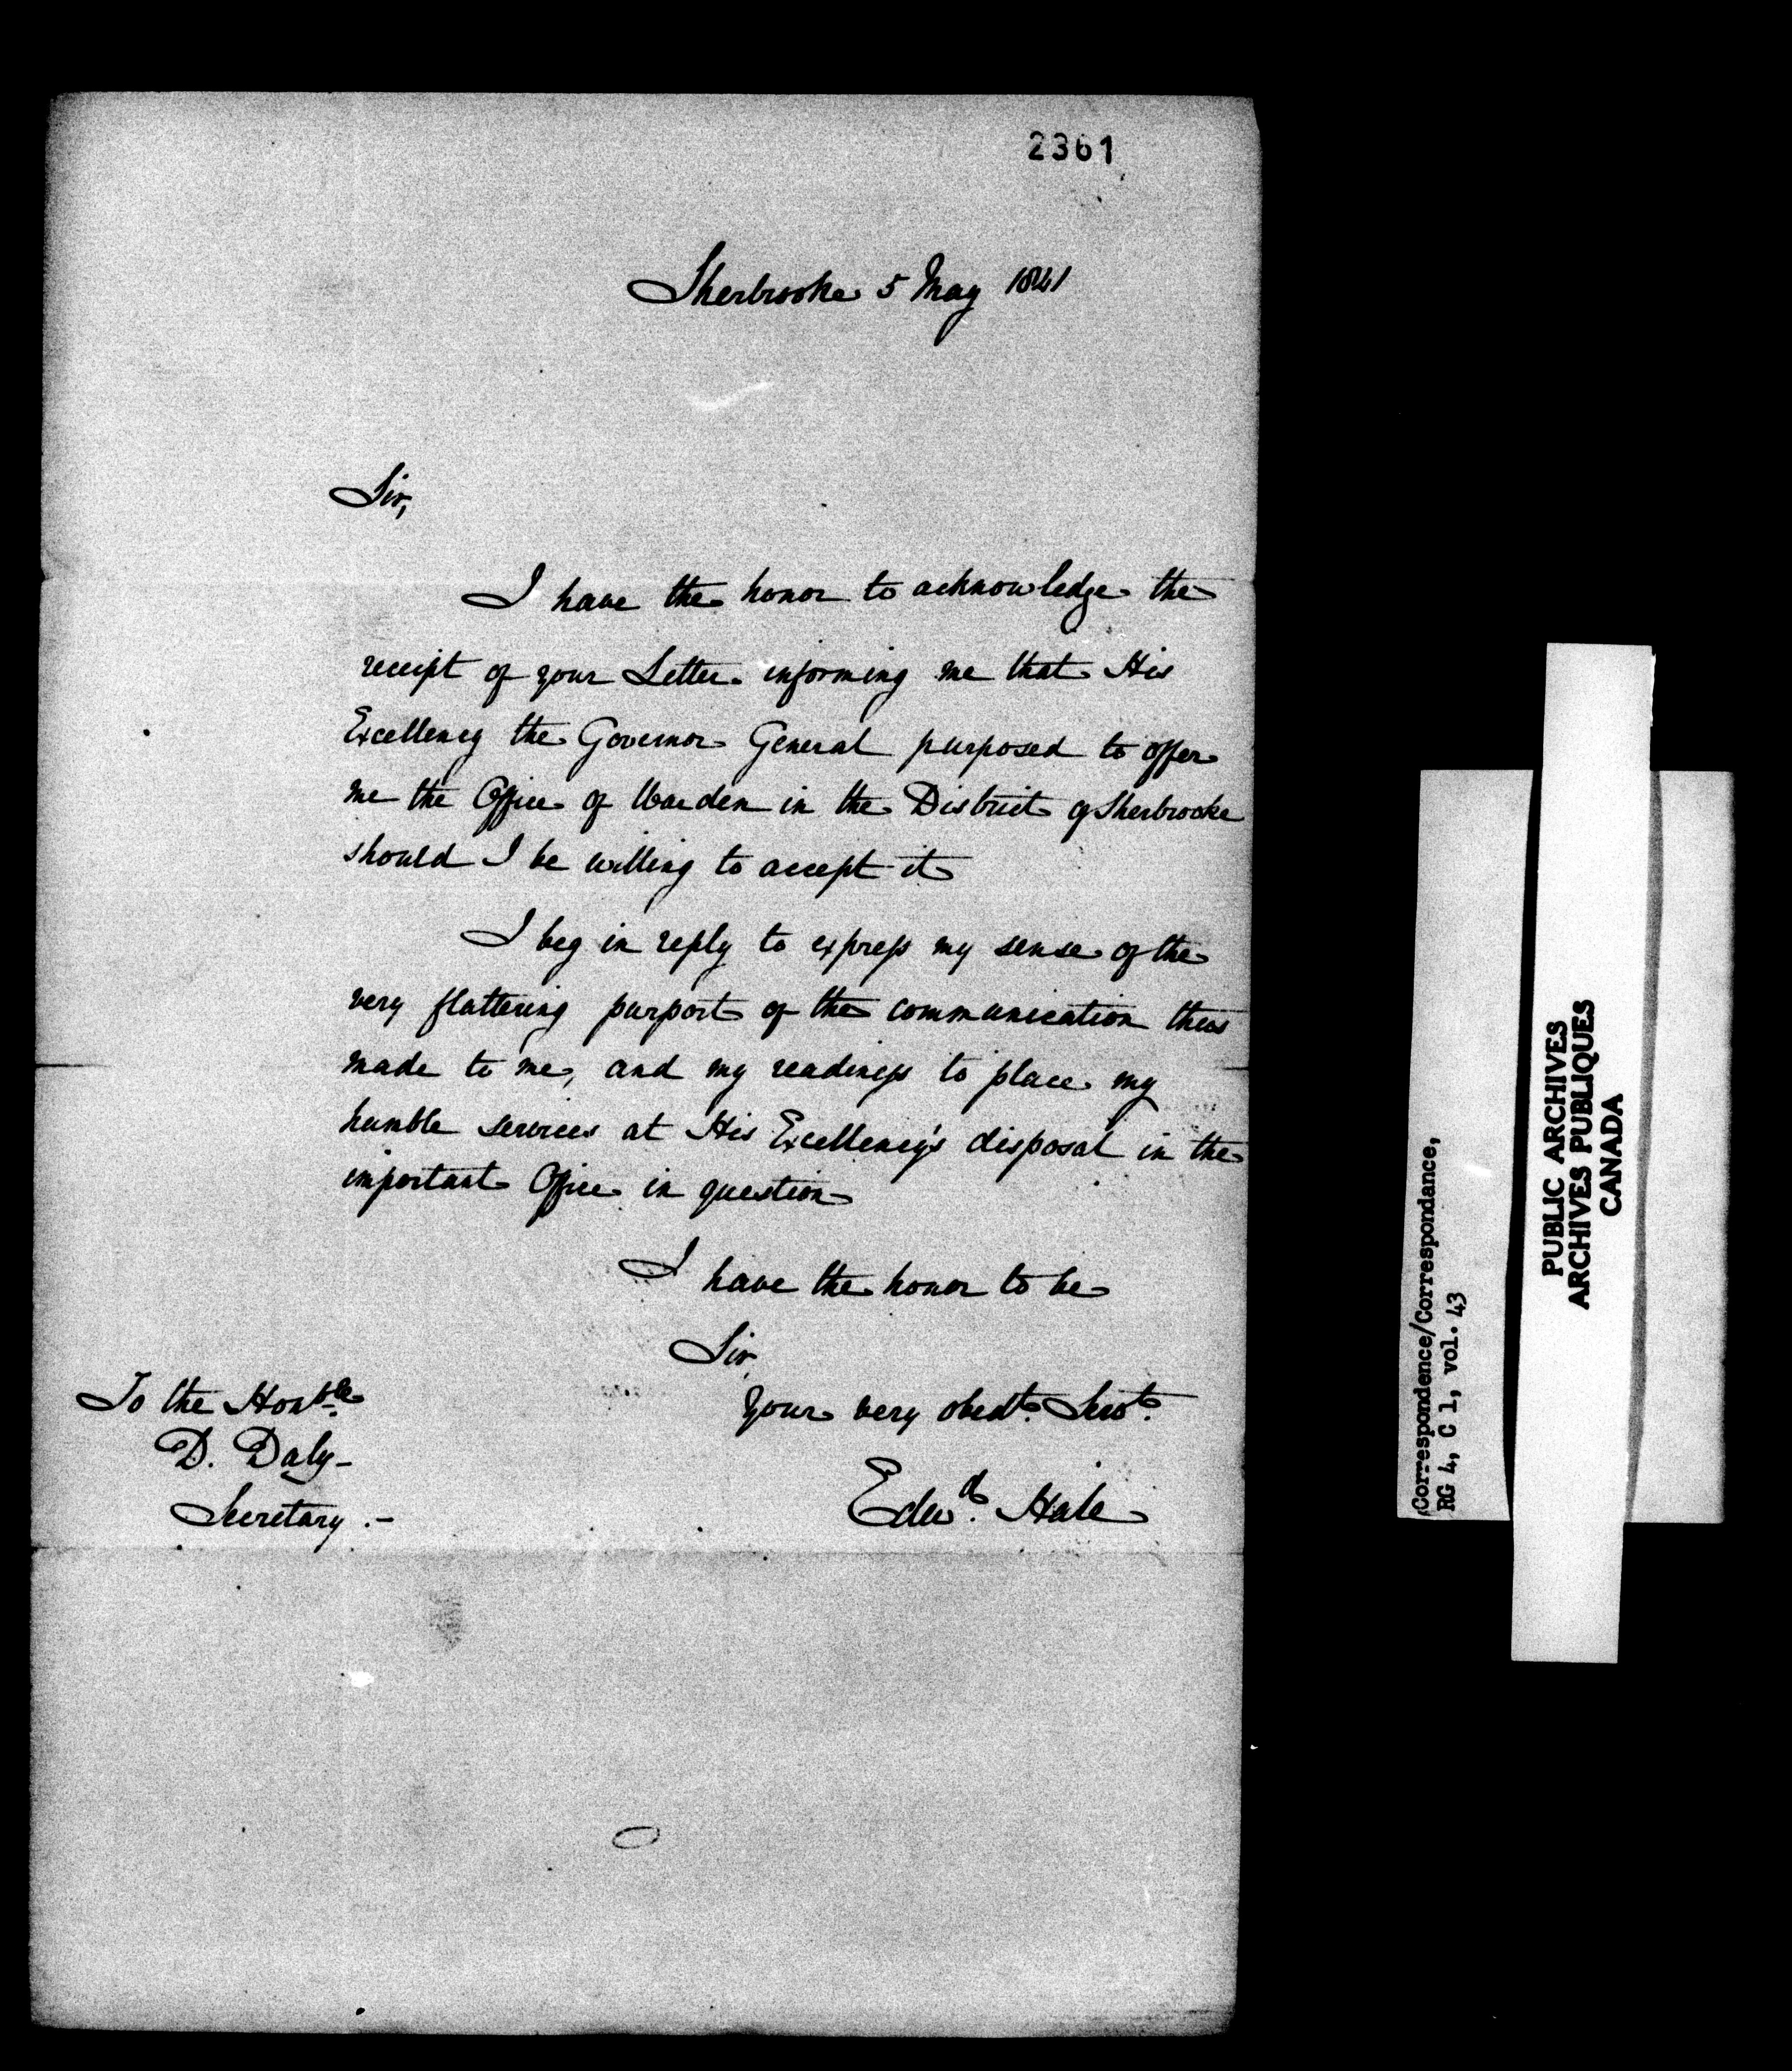 2361
Sherbrooke 5 May 1841
Sir,
I have the honor to acknowledge the
receipt of your Letter informing me that His
Excellency the Governor General purposed to offer
me the Office of Warden in the District of Sherbrooke
should I be willing to accept it
I beg in reply to express my sense of the
very flattering purport of the communication thus
made to me, and my readiness to place my
humble services at His Excellency's disposal in the
important Office in question
I have the honor to be
Sir
Your very obedt. Servt.
Edwd. Hale
To the Honble.
D. Daly-
Secretary.-
Correspondence/Correspondance,
RG 4, C 1, vol. 43
PUBLIC ARCHIVES
ARCHIVES PUBLIQUES
CANADA